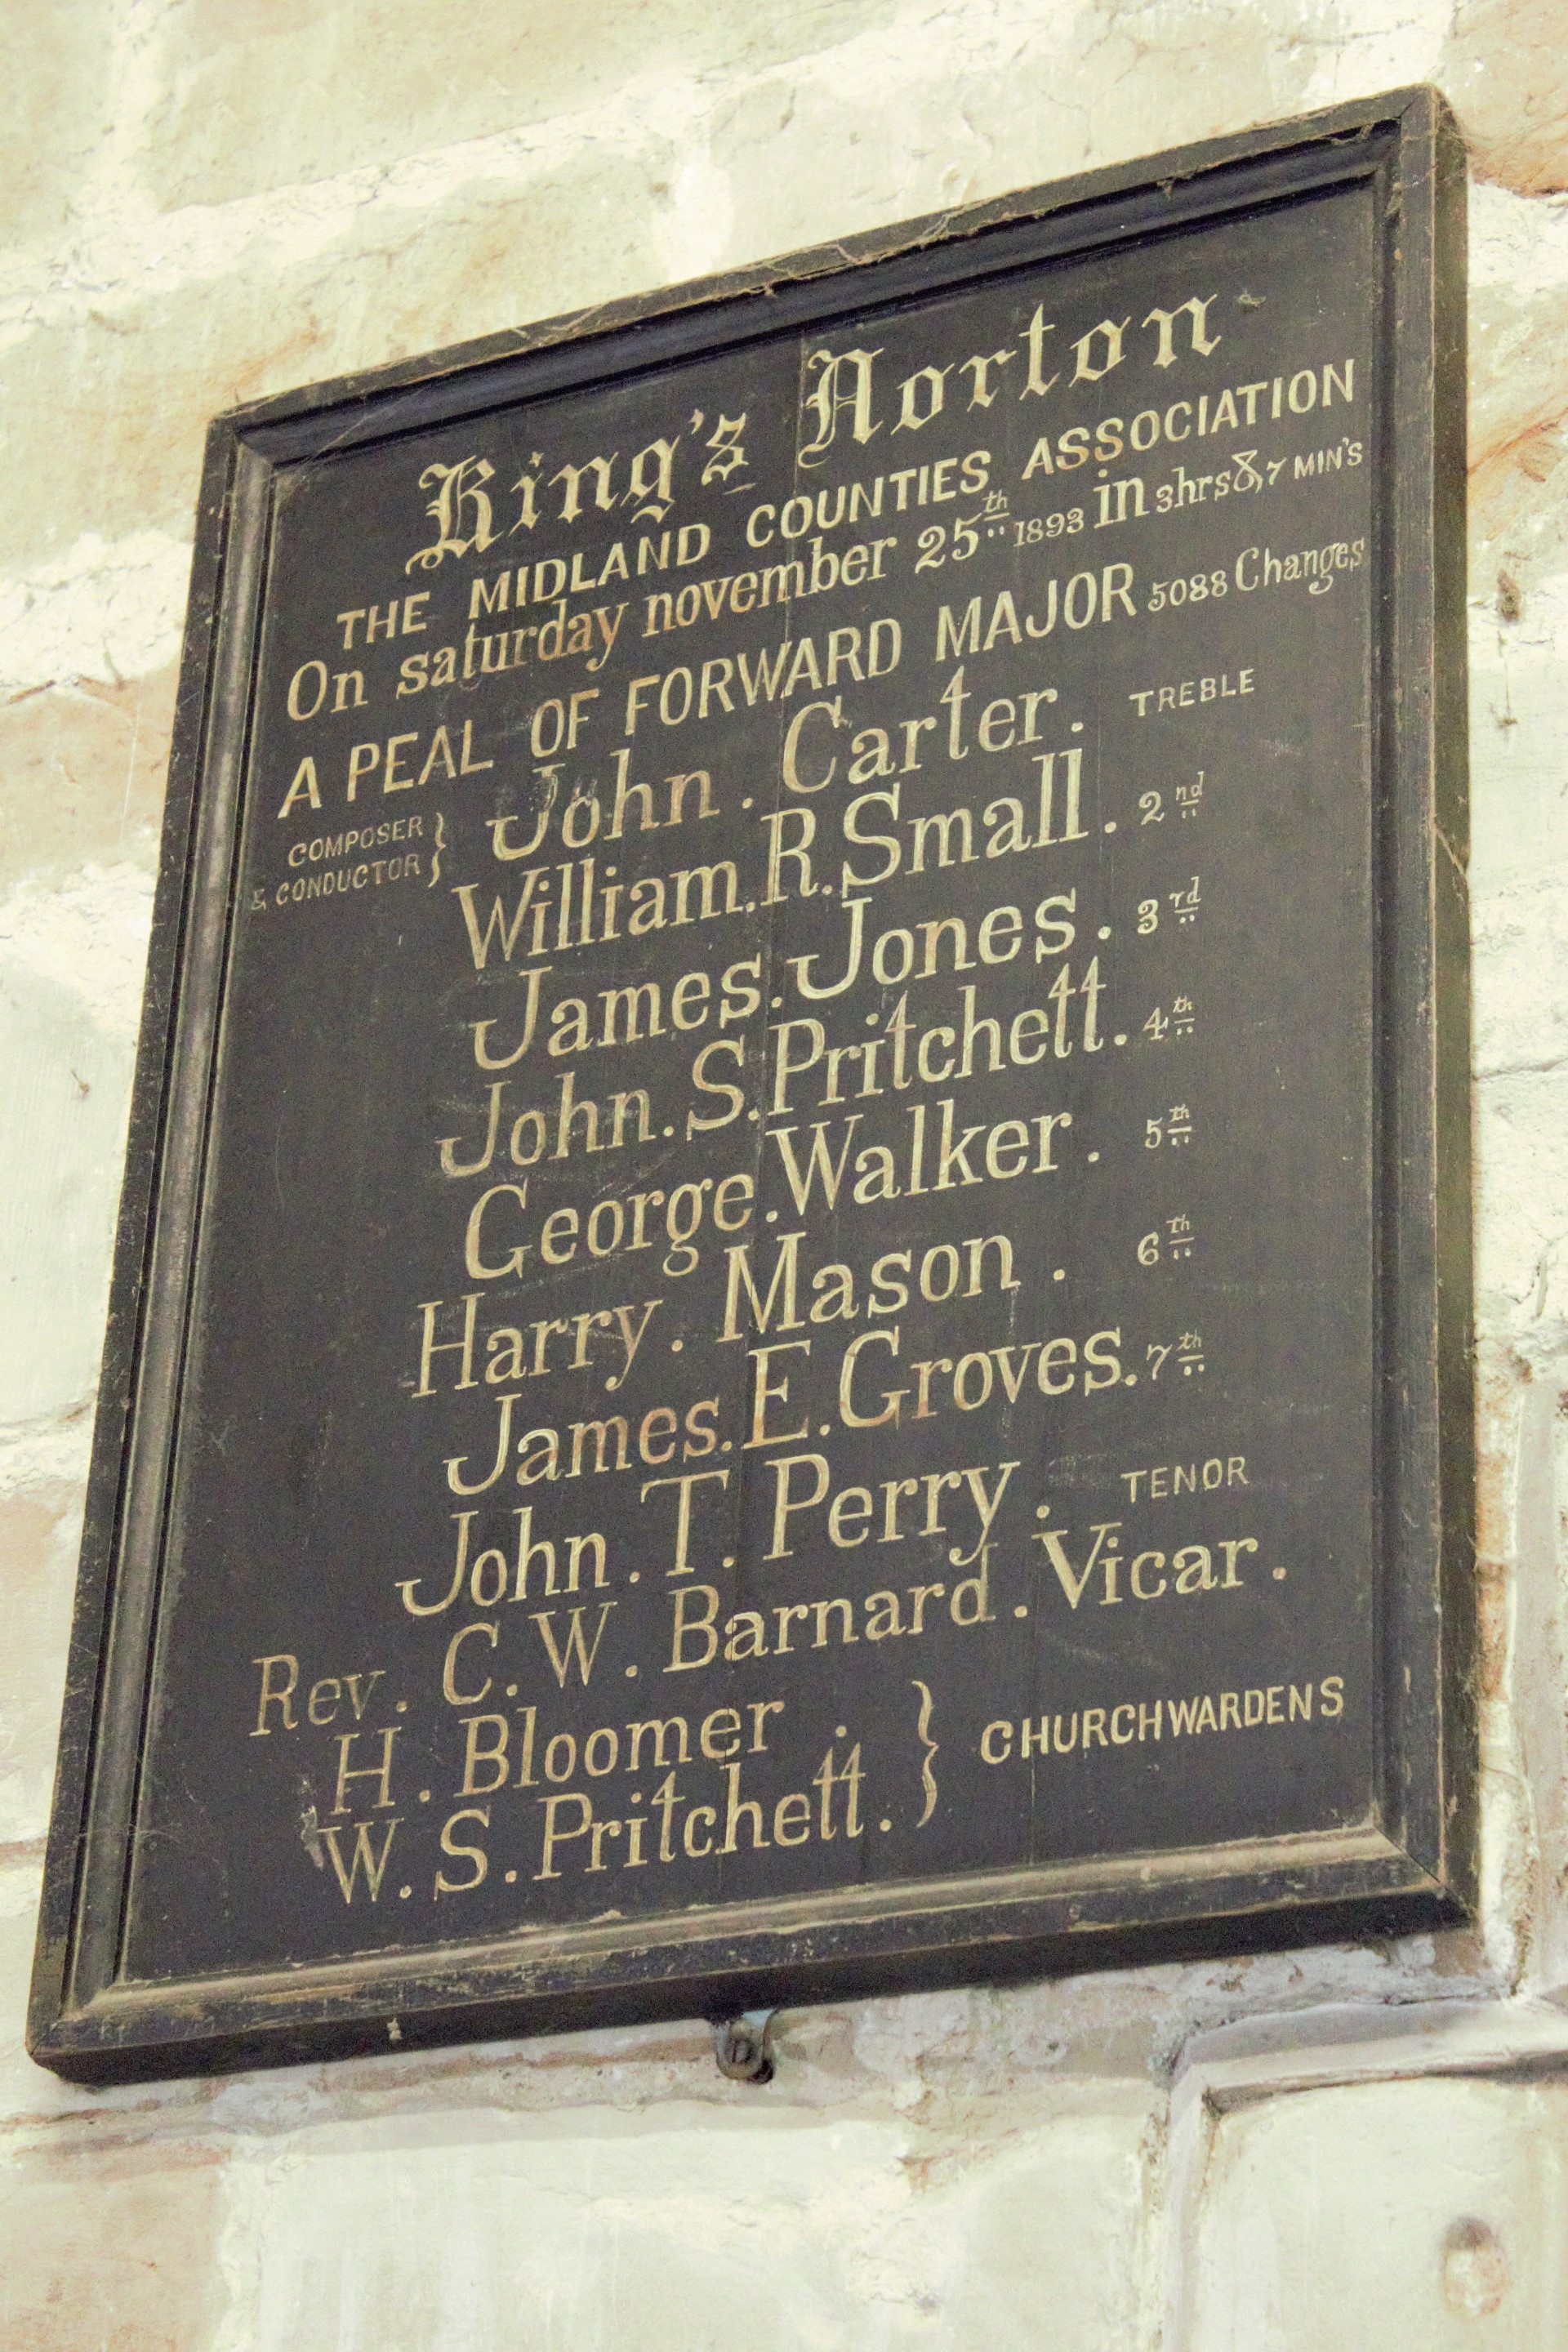 King's Norton
THE MIDLAND COUNTIES ASSOCIATION
On saturday november 25th 1893 in 3hrs & 7 MIN'S
A PEAL OF FORWARD MAJOR 5088 Changes
COMPOSER & CONDUCTOR } John. Carter. TREBLE
William. R. Small. 2nd
James. Jones. 3rd
John. S. Pritchett. 4th
George. Walker. 5th
Harry. Mason. 6th
James. E. Groves. 7th
John. T. Perry. TENOR
Rev. C. W. Barnard. Vicar.
H. Bloomer.
W. S. Pritchett. } CHURCHWARDENS